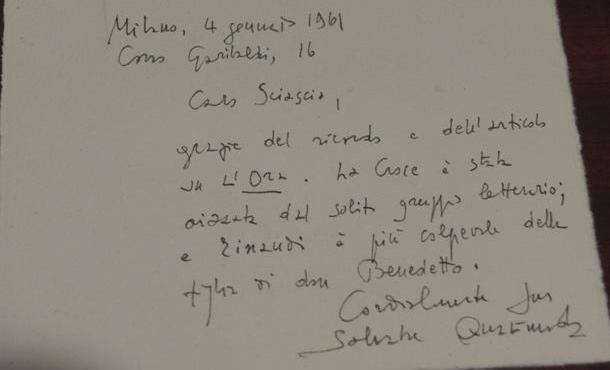 Milano, 4 gennaio 1961
Corso Garibaldi, 16
Caro Sciascia,
grazie del ricordo e dell'articolo
su L'Ora. La Croce è stata
aizzata dal solito gruppo letterario;
e Einaudi è più colpevole della
figlia di don Benedetto.
Cordialmente suo
Salvatore Quasimodo